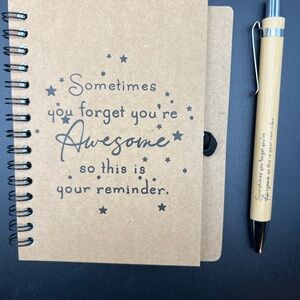 Sometimes
you forget you're
Awesome
so this is
your reminder.
Sometimes you forget you're
Awesome so this is your reminder